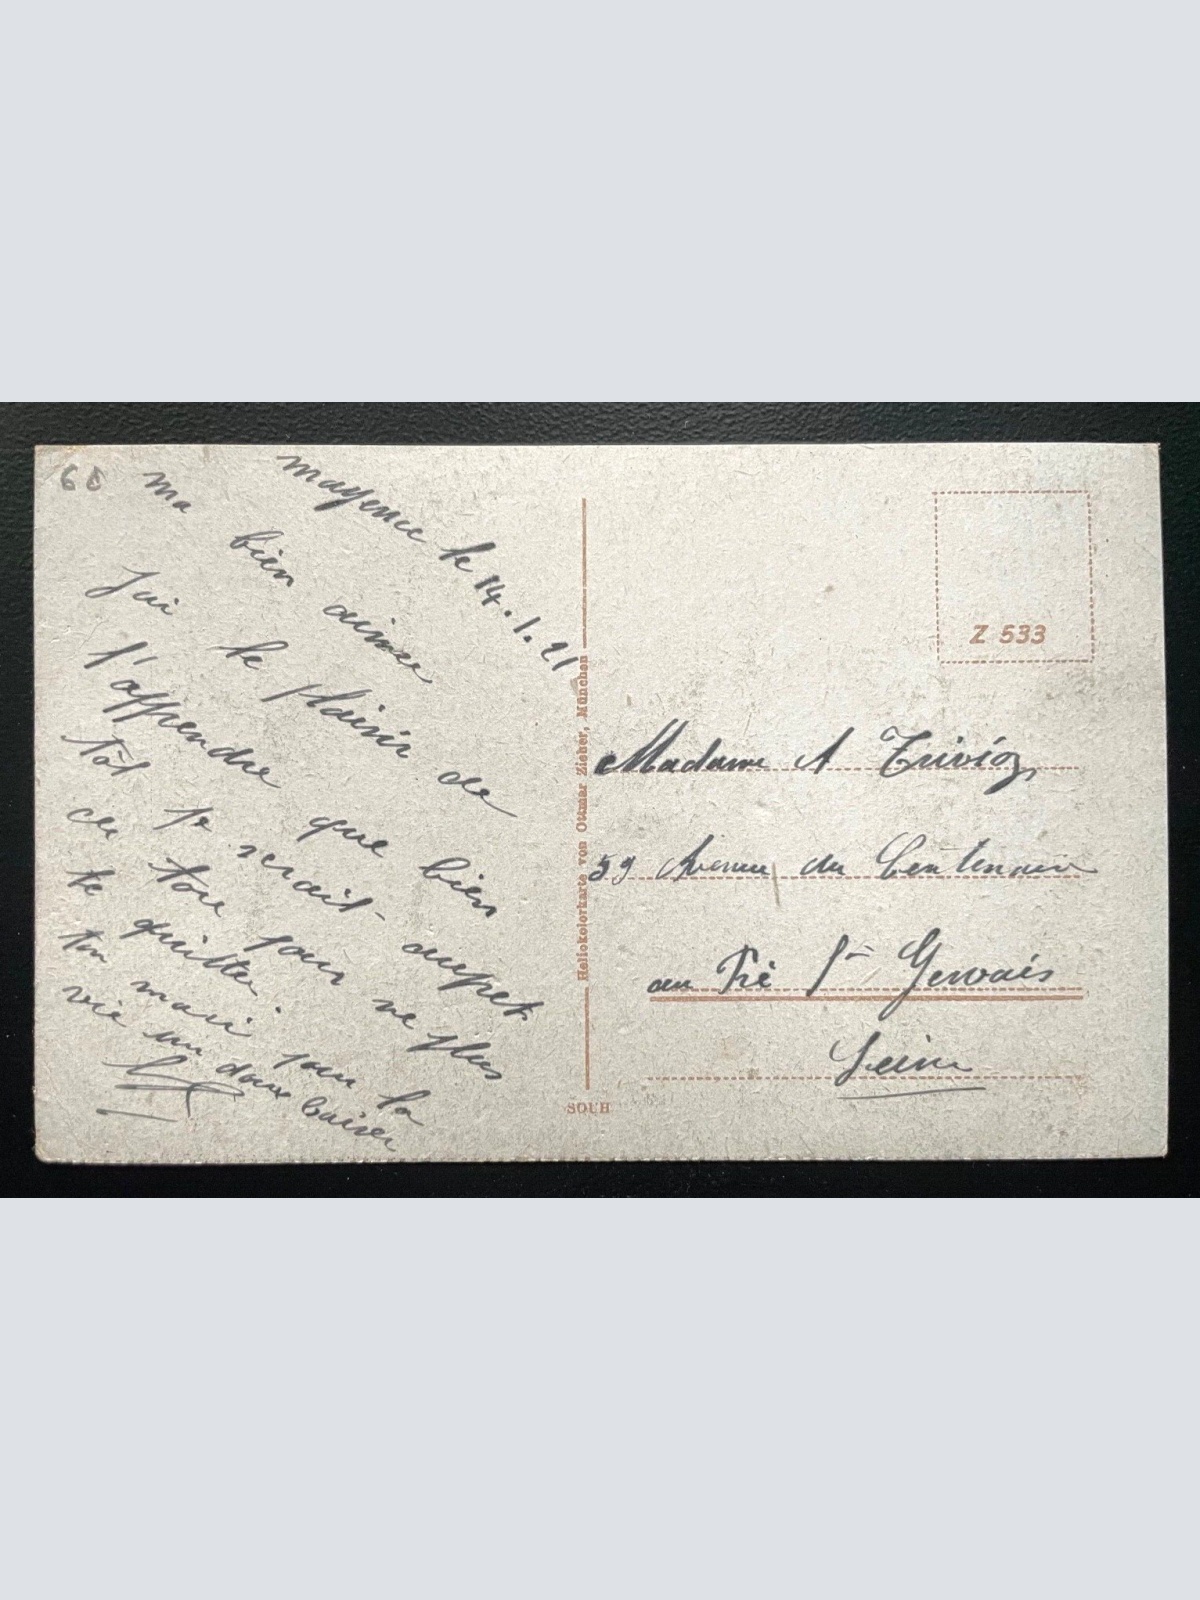 68
mayence le 14.1.21
ma bien aimée
J'ai le plaisir de
t'appendre que bien
tôt je serait aupret
de toie pour ne plus
te quitter.
ton mari pour la
vie un doux baiser
Heliokolorkarte von Ottmar Zieher, München
SOUH
Z 533
Madame A
59 Avenue du Centenaire
au Pré St Gervais
Seine